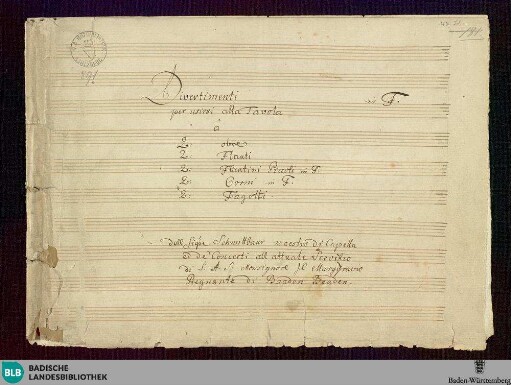 Divertimenti in F.
per usarsi alla Tavola
à
2. oboe
2. Flauti
2. Flautini Piccoli in F.
2. Corni in F.
2. Fagotti
Dell Sigre Schmittbaur maestro di Capella
e de Concerti all attuale Servizio
di S A S Monsignor Il Margravio
Regnante di Baaden Baaden.
BLB
BADISCHE
LANDESBIBLIOTHEK
Baden-Württemberg